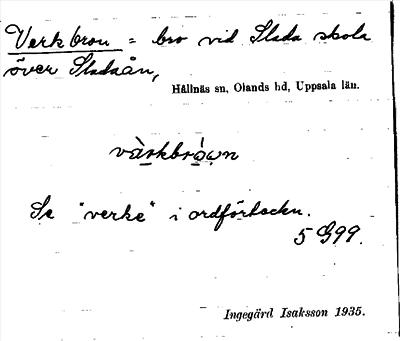 Verkbron = bro vid Slada skola
över Sladaån,
Hållnäs sn, Olands hd, Uppsala län.
värkbrówn
Se "verke" i ordförteckn.
5 G99.
Ingegärd Isaksson 1935.